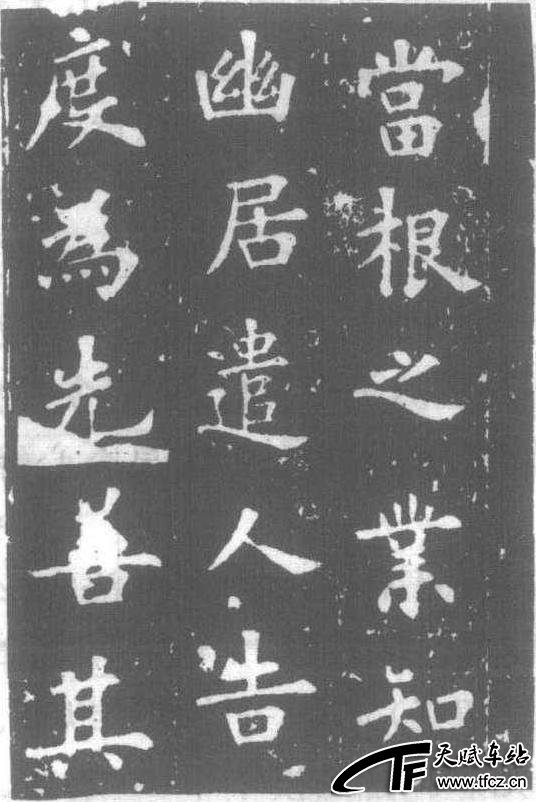 當根之業知
幽居遣人告
度為先善其
天赋车站
www.tfcz.cn